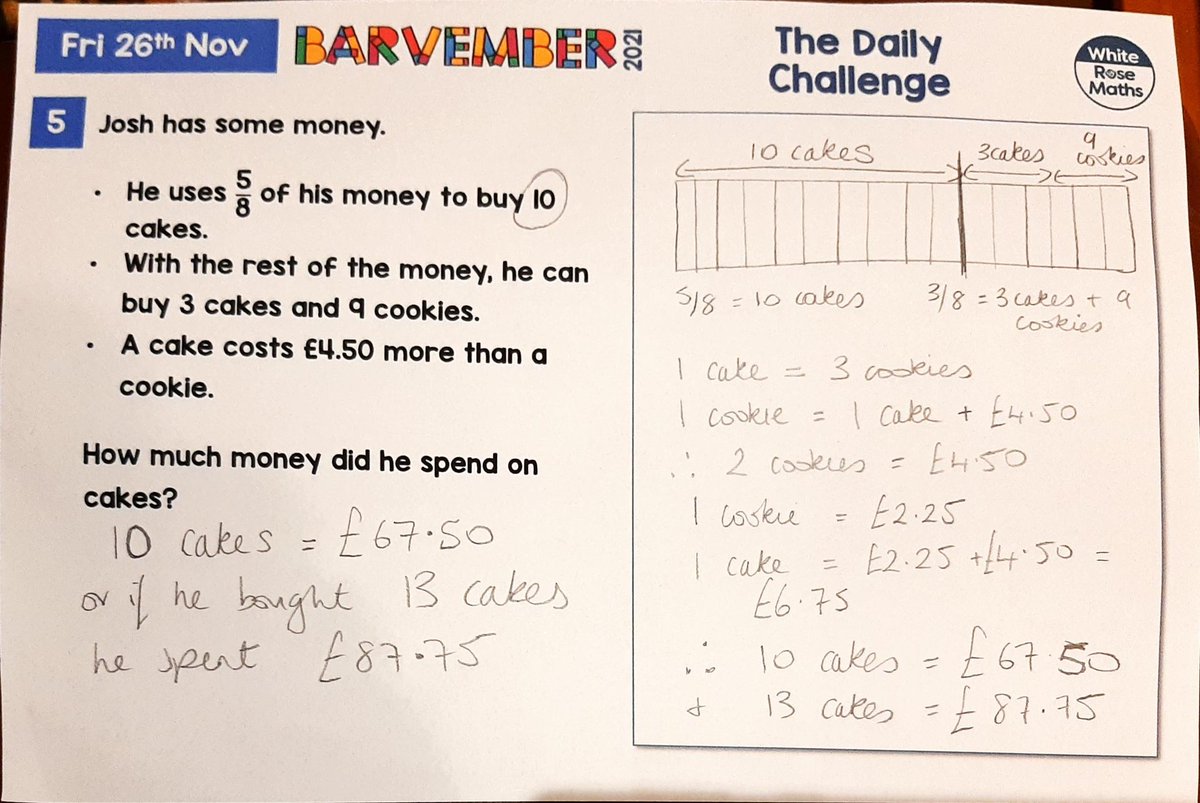 Fri 26th Nov
BARVEMBER 2021
The Daily
Challenge
White
Rose
Maths
5 Josh has some money.
• He uses 5/8 of his money to buy 10
cakes.
• With the rest of the money, he can
buy 3 cakes and 9 cookies.
• A cake costs £4.50 more than a
cookie.
How much money did he spend on
cakes?
10 cakes = £67.50
or if he bought 13 cakes
he spent £87.75
10 cakes 3cakes 9
cookies
5/8 = 10 cakes 3/8 = 3 cakes + 9
cookies
1 cake = 3 cookies
1 cookie = 1 cake + £4.50
∴ 2 cookies = £4.50
1 cookie = £2.25
1 cake = £2.25 + £4.50 =
£6.75
∴ 10 cakes = £67.50
+ 13 cakes = £87.75